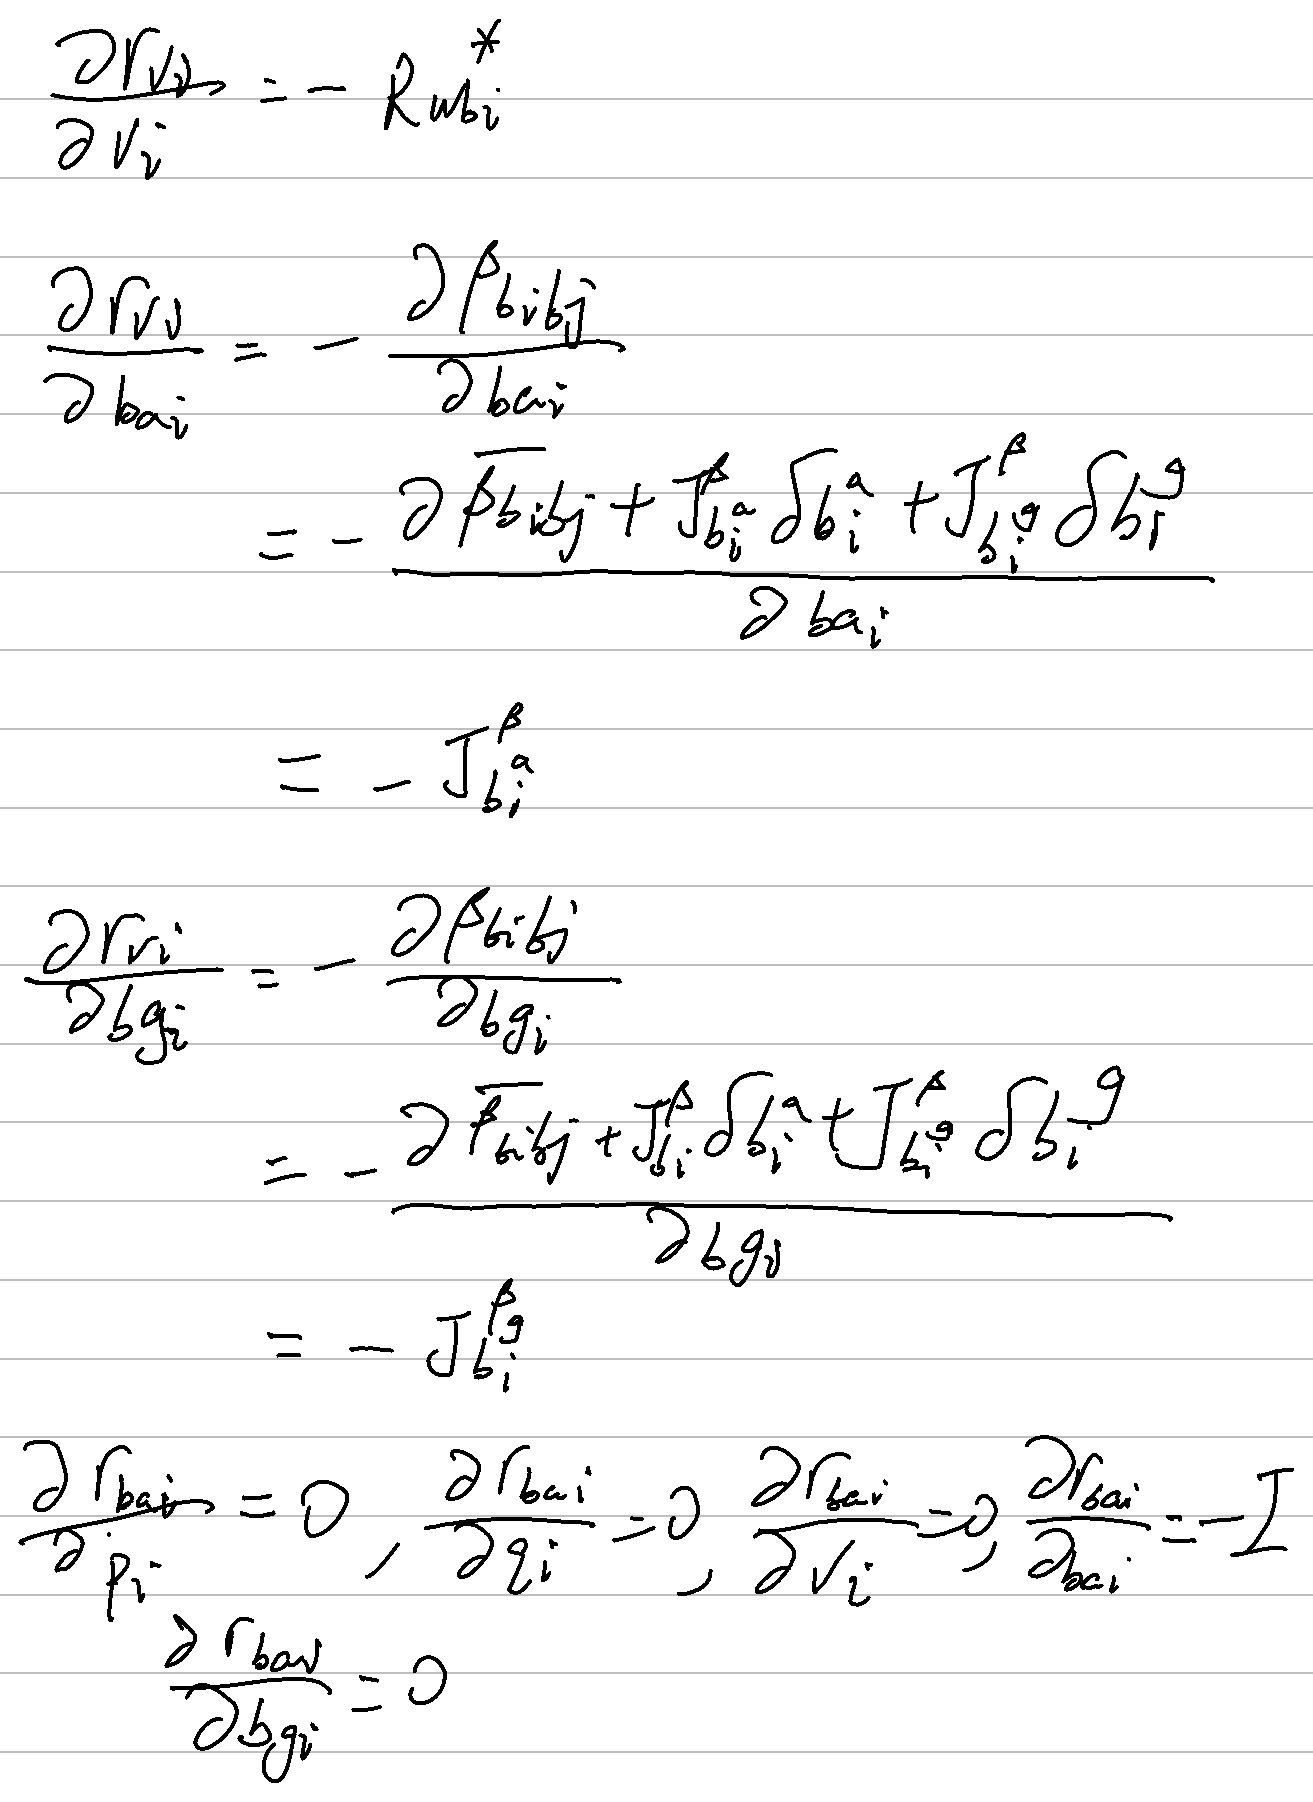 ∂r_{vi}/∂v_i = - R_{wb_i}^*
∂r_{vi}/∂b_{ai} = - ∂β_{b_i b_j}/∂b_{ai}
= - (∂ \overline{β}_{b_i b_j} + J^β_{b_i^a} δb_i^a + J^β_{b_i^g} δb_i^g)/∂b_{ai}
= - J^β_{b_i^a}
∂r_{vi}/∂b_{gi} = - ∂β_{b_i b_j}/∂b_{gi}
= - (∂ \overline{β}_{b_i b_j} + J^β_{b_i} δb_i^a + J^β_{b_i^g} δb_i^g)/∂b_{gi}
= - J^β_{b_i^g}
∂r_{bai}/∂p_i = 0, ∂r_{bai}/∂q_i = 0, ∂r_{bai}/∂v_i = 0, ∂r_{bai}/∂b_{ai} = -I
∂r_{bai}/∂b_{gi} = 0